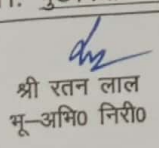 श्री रतन लाल
भू–अभि0 निरी0